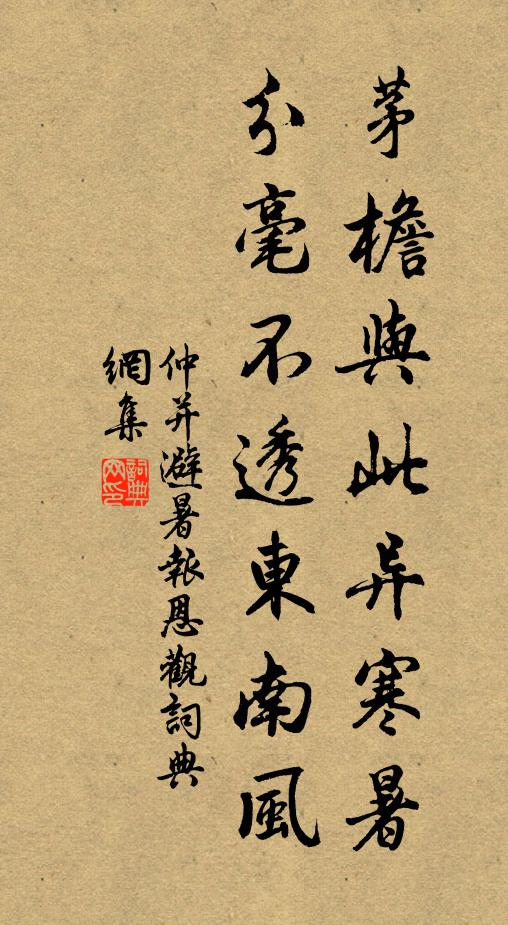 茅檐與此异寒暑
分毫不透東南風
仲并避暑報恩觀詞典
網集
詞典
网印